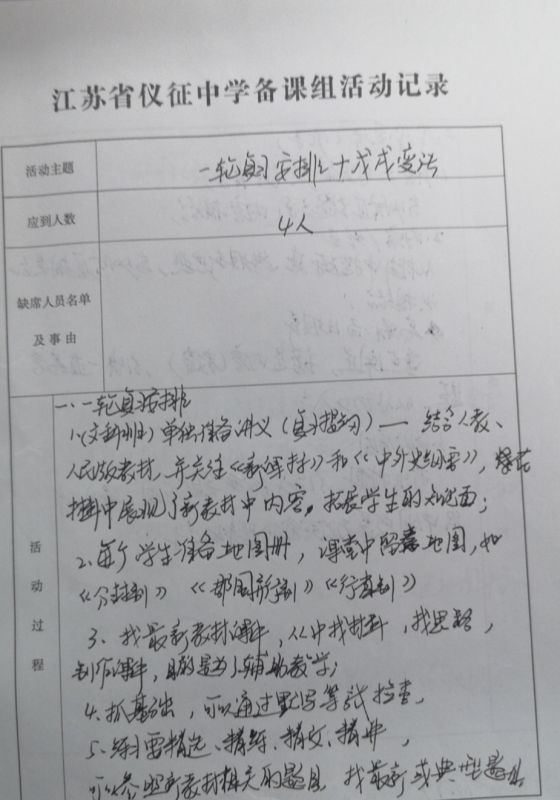 江苏省仪征中学备课组活动记录
活动主题
一轮复习安排 十戊戌变法
应到人数
4人
缺席人员名单
及事由
活动过程
一、一轮复习安排
1、(文科班)单独准备讲义(复习提纲)— 结合人教、
人民版教材,并关注《新教材》和《中外史纲要》,
中展现了新教材中内容,拓展学生的知识面;
2、每个学生准备地图册,课堂中 地图,如
《分封制》《郡国并行制》《行省制》
3、找最新教材课件,从中找材料,找思路,
制作课件, 辅助教学;
4、抓基础,可以通过默写等 检查,
5、练习要精选、精练、精改、精讲,
可以参照新教材相关的题目,找最新或典型题